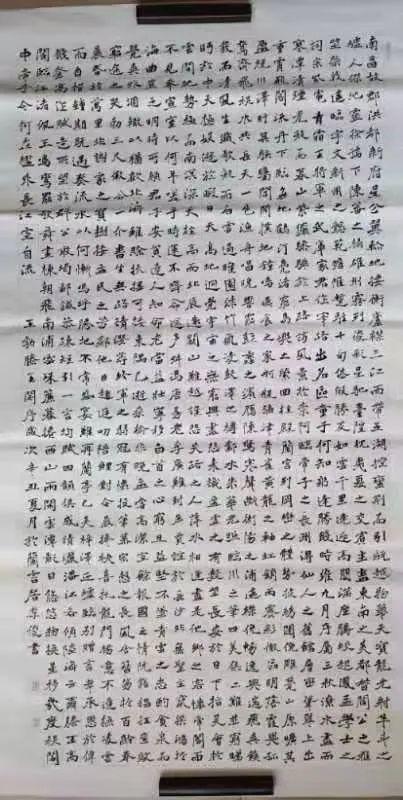 南昌故郡洪都新府星分翼軫地接衡廬襟三江而帶五湖控蠻荊而引甌越物華天寶龍光射牛斗之
墟人傑地靈徐孺下陳蕃之榻雄州霧列俊彩星馳臺隍枕夷夏之交賓主盡東南之美都督閻公之雅
望棨戟遙臨宇文新州之懿範襜帷暫駐十旬休假勝友如雲千里逢迎高朋滿座騰蛟起鳳孟學士之
詞宗紫電青霜王將軍之武庫家君作宰路出名區童子何知躬逢勝餞時維九月序屬三秋潦水盡而
寒潭清煙光凝而暮山紫儼驂騑於上路訪風景於崇阿臨帝子之長洲得仙人之舊館層巒聳翠上出
重霄飛閣流丹下臨無地鶴汀鳧渚窮島嶼之縈迴桂殿蘭宮即岡巒之體勢披繡闥俯雕甍山原曠其
盈視川澤紆其駭矚閭閻撲地鐘鳴鼎食之家舸艦迷津青雀黃龍之舳虹銷雨霽彩徹區明落霞與孤
鶩齊飛秋水共長天一色漁舟唱晚響窮彭蠡之濱雁陣驚寒聲斷衡陽之浦遙襟甫暢逸興遄飛爽籟
發而清風生纖歌凝而白雲遏睢園綠竹氣凌彭澤之樽鄴水朱華光照臨川之筆四美具二難並窮睇
眄於中天極娛遊於暇日天高地迥覺宇宙之無窮興盡悲來識盈虛之有數望長安於日下目吳會於
雲間地勢極而南溟深天柱高而北辰遠關山難越誰悲失路之人萍水相逢盡是他鄉之客懷帝閽而
不見奉宣室以何年嗟乎時運不齊命途多舛馮唐易老李廣難封屈賈誼於長沙非無聖主竄梁鴻於
海曲豈乏明時所賴君子見機達人知命老當益壯寧移白首之心窮且益堅不墜青雲之志酌貪泉而
覺爽處涸轍以猶歡北海雖賒扶搖可接東隅已逝桑榆非晚孟嘗高潔空餘報國之情阮籍猖狂豈效
窮途之哭勃三尺微命一介書生無路請纓等終軍之弱冠有懷投筆慕宗愨之長風舍簪笏於百齡奉
晨昏於萬里非謝家之寶樹接孟氏之芳鄰他日趨庭叨陪鯉對今茲捧袂喜托龍門楊意不逢撫凌雲
而自惜鍾期既遇奏流水以何慚嗚乎勝地不常盛筵難再蘭亭已矣梓澤丘墟臨別贈言幸承恩於偉
餞登高作賦是所望於群公敢竭鄙懷恭疏短引一言均賦四韻俱成請灑潘江各傾陸海云爾滕王高
閣臨江渚佩玉鳴鸞罷歌舞畫棟朝飛南浦雲珠簾暮捲西山雨閒雲潭影日悠悠物換星移幾度秋閣
中帝子今何在檻外長江空自流
王勃滕王閣序歲次辛丑夏月於蘭居俊書